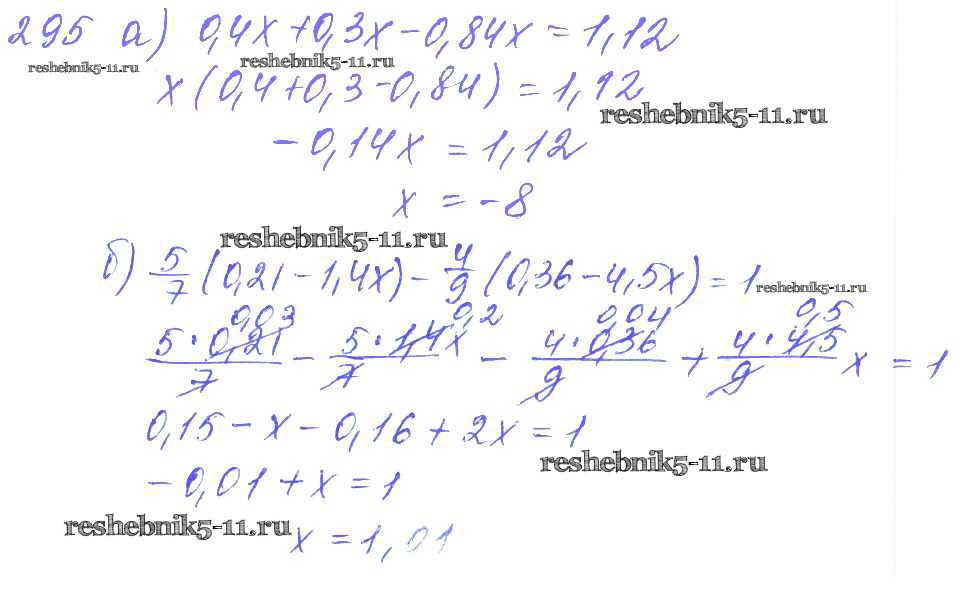 295 а) 0,4x+0,3x-0,84x=1,12
reshebnik5-11.ru reshebnik5-11.ru
x(0,4+0,3-0,84)=1,12
reshebnik5-11.ru
-0,14x=1,12
x=-8
reshebnik5-11.ru
б) 5/7(0,21-1,4x)-4/9(0,36-4,5x)=1
reshebnik5-11.ru
0,03 0,2 0,04 0,5
5·0,21/7 - 5·1,4x/7 - 4·0,36/9 + 4·4,5/9 x = 1
0,15-x-0,16+2x=1
reshebnik5-11.ru
-0,01+x=1
reshebnik5-11.ru
x=1,01